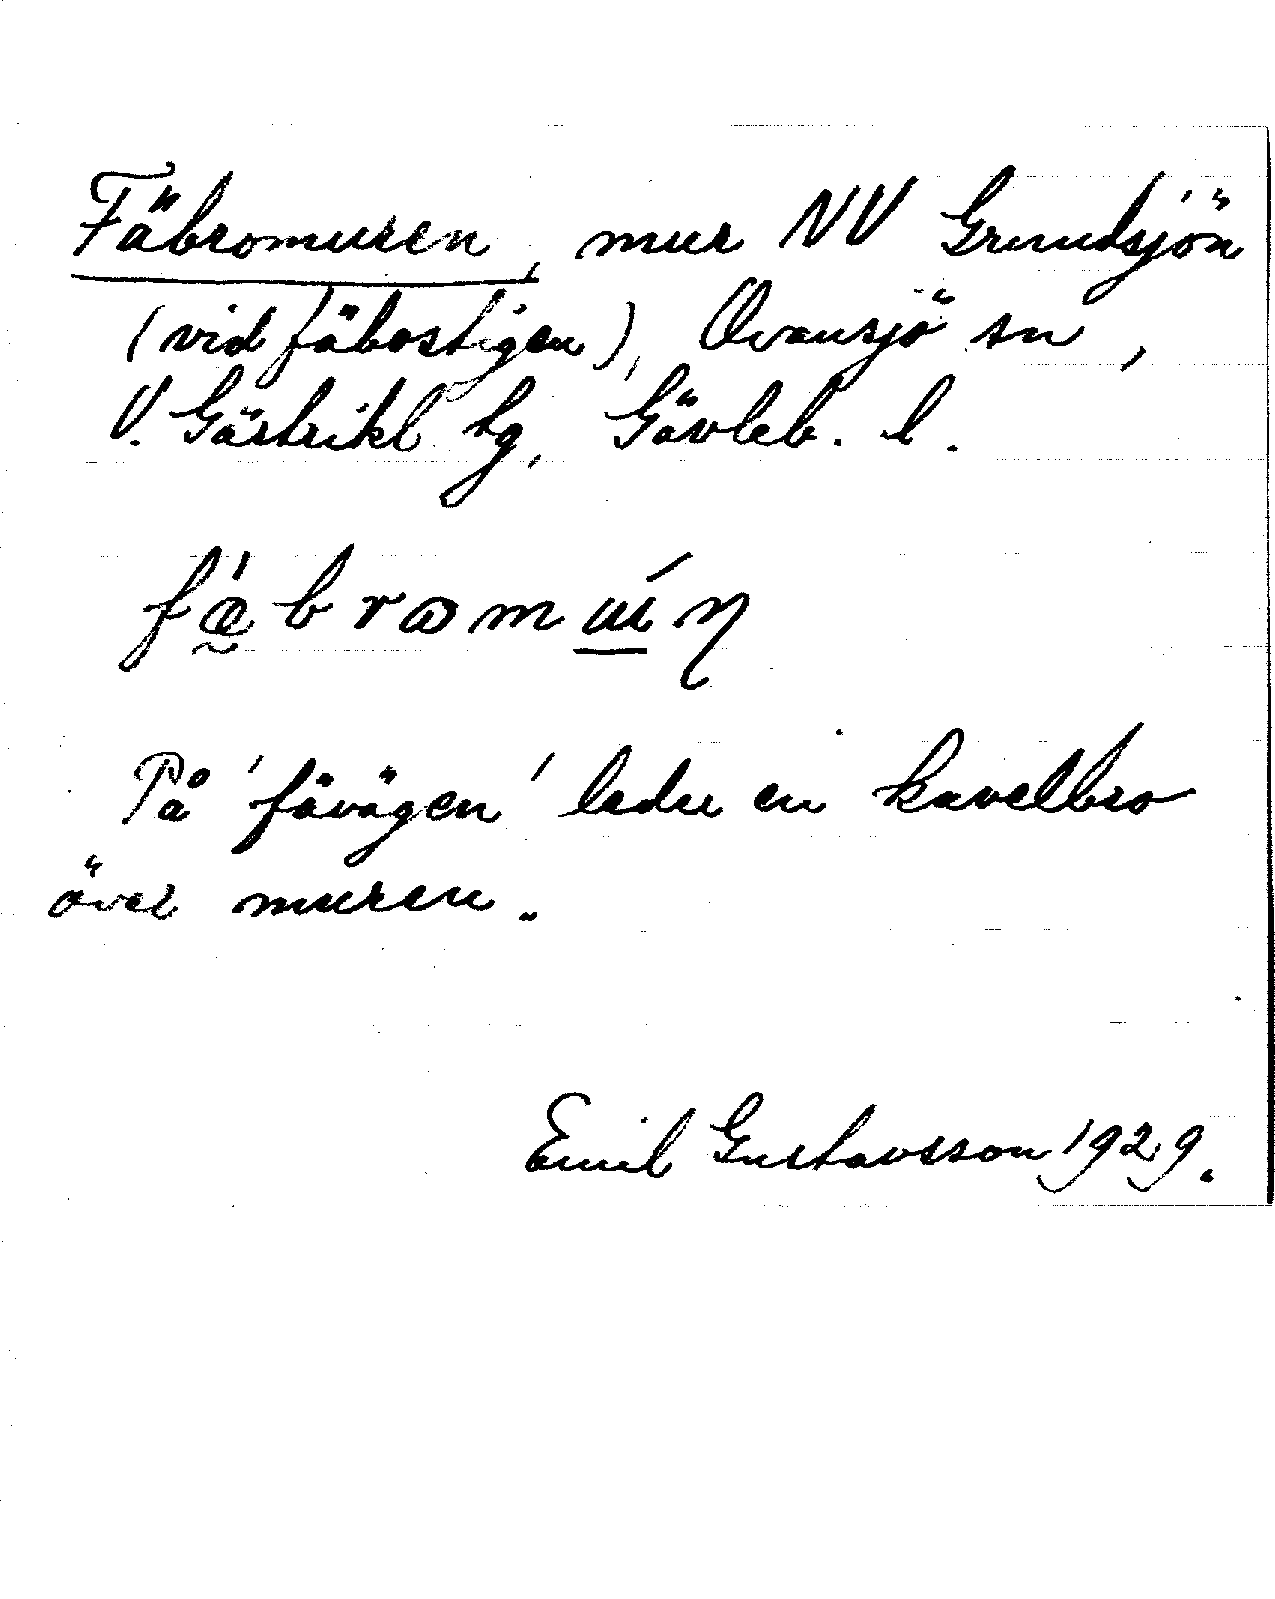 Fäbromuren, mur NV Grundsjön
(vid fäbostigen), Ovansjö sn,
V. Gästrikl hg, Gävleb. l.
På 'fävägen' leder en kavelbro
över muren.
Emil Gustavsson 1929.